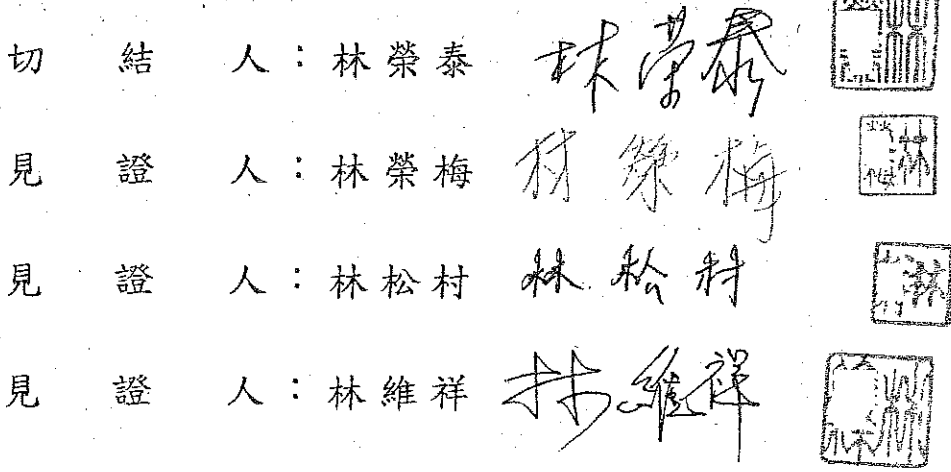 切結人：林榮泰 林荣泰
見證人：林榮梅 林榮梅
見證人：林松村 林松村
見證人：林維祥 林維祥